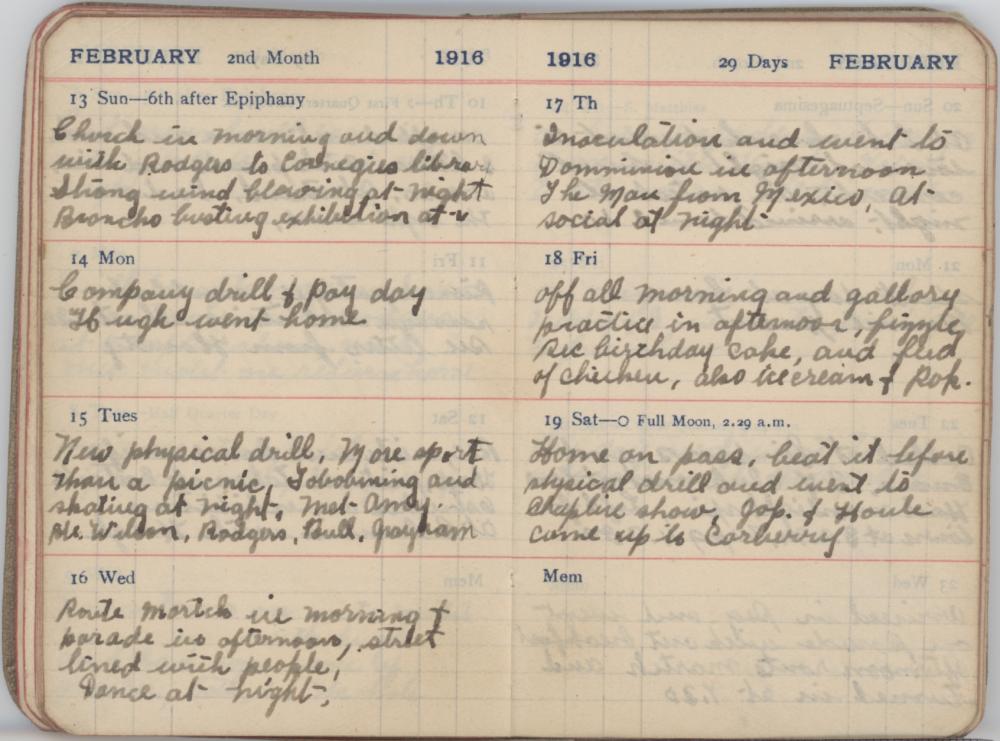 FEBRUARY 2nd Month 1916
13 Sun—6th after Epiphany
Church in morning and down
with Rodgers to Cornegies librar
Strong wind blowing at night
Broncho busting exhibition at
14 Mon
Company drill & pay day
Hugh went home
15 Tues
New physical drill, More sport
than a picnic, Tobobining and
skating at night, Met Amy.
Wilson, Rodgers, Bull, Grayham
16 Wed
Route martch in morning &
parade in afternoon, street
lined with people,
Dance at night,
1916 29 Days FEBRUARY
17 Th
Inoculation and went to
Domminion in afternoon
The Man from Mexico, At
social at night
18 Fri
off all morning and gallory
practice in afternoon, fizzle,
Rec birthday cake, and feed
of chicken, also icecream & Pop.
19 Sat—O Full Moon, 2.29 a.m.
Home on pass, beat it before
physical drill and went to
Chaplin show, Jop. & Houle
came up to Carberry
Mem